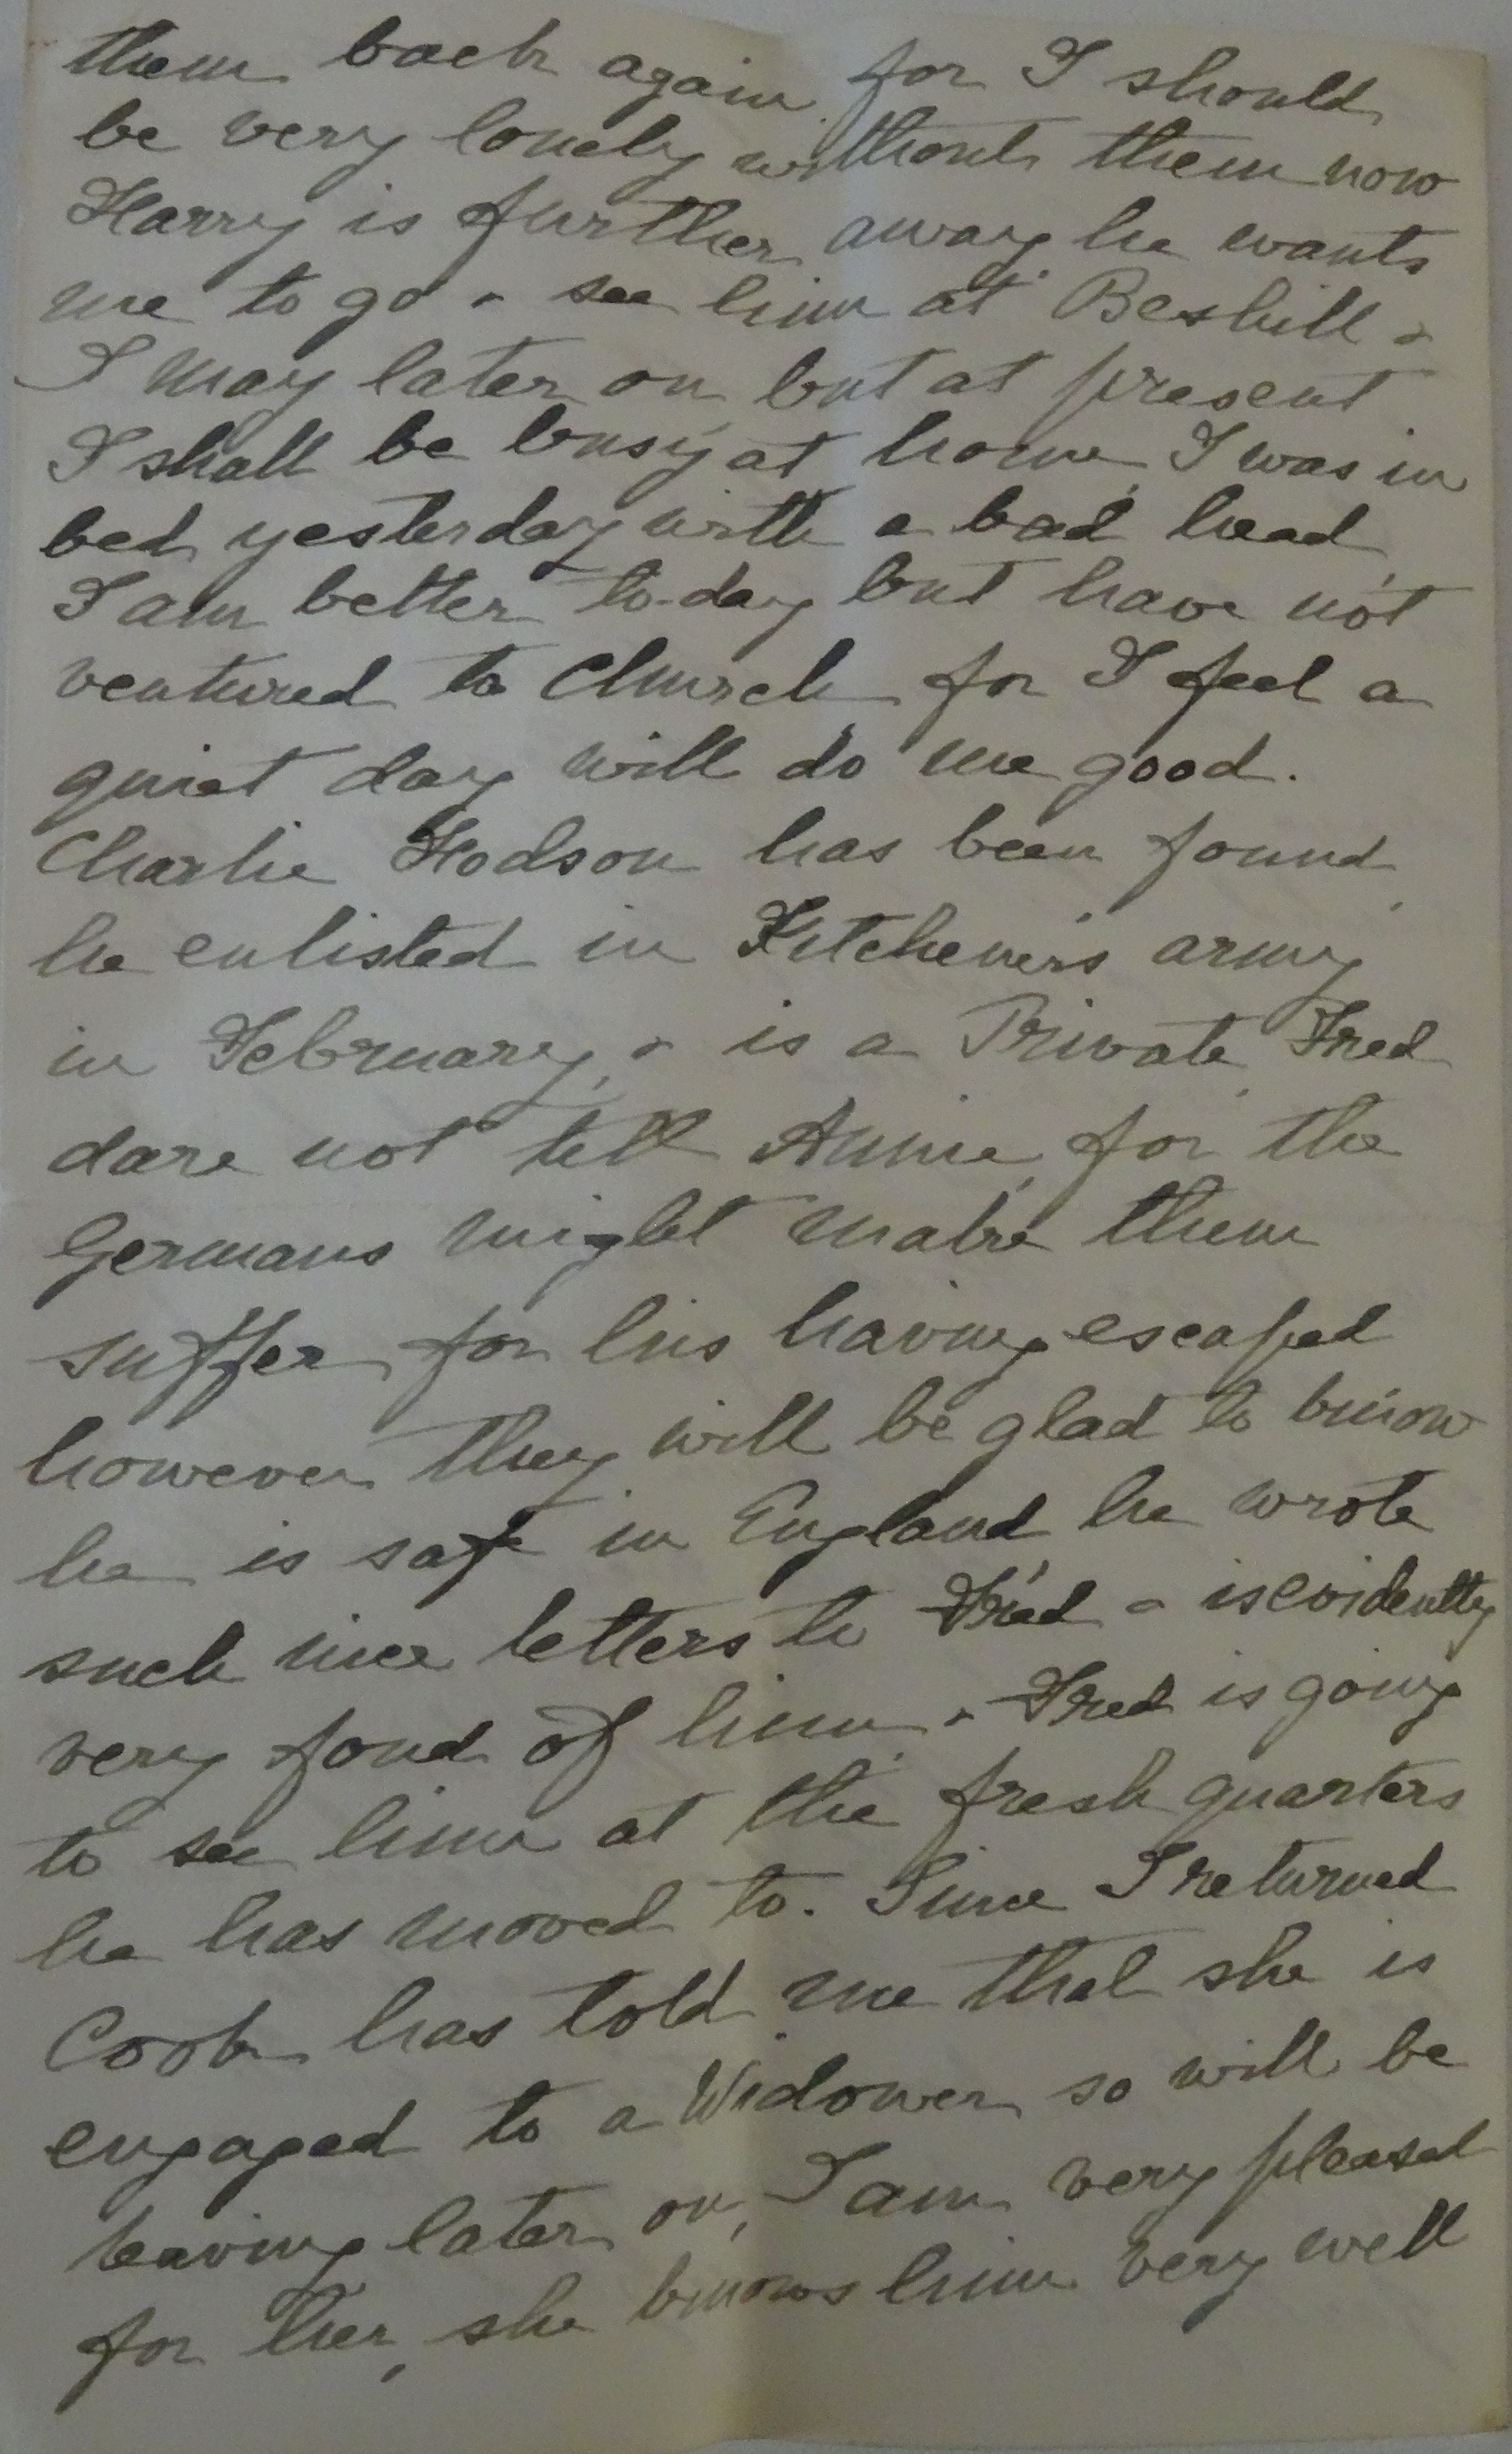 them back again, for I should
be very lonely without them now
Harry is further away he wants
me to go & see him at Bexhill &
I may later on but at present
I shall be busy at home, I was in
bed yesterday with a bad head,
I am better to-day but have not
ventured to Church for I feel a
quiet day will do me good.
Charlie Hodson has been found,
he enlisted in Kitchener's army
in February, & is a Private, Fred
dare not tell Annie, for the
Germans might make them
suffer for his having escaped
however they will be glad to know
he is safe in England he wrote
such nice letters to Fred & is evidently
very fond of him, & Fred is going
to see him at the fresh quarters
he has moved to. Since I returned
Cook has told me that she is
engaged to a Widower, so will be
leaving later on, I am very pleased
for her, she knows him very well